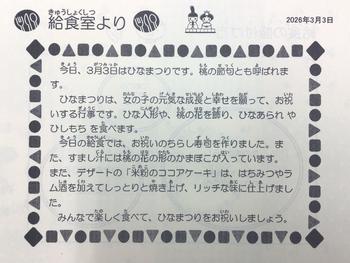 給食室より
2026年3月3日
今日、3月3日はひなまつりです。桃の節句とも呼ばれま
す。
ひなまつりは、女の子の元気な成長と幸せを願って、お祝
いする行事です。ひな人形や、桃の花を飾り、ひなあられ や
ひしもち を食べます。
今日の給食では、お祝いのちらし寿司を作りました。ま
た、すまし汁には桃の花の形のかまぼこが入っています。
また、デザートの「米粉のココアケーキ」は、はちみつやラ
ム酒を加えてしっとりと焼き上げ、リッチな味に仕上げまし
た。
みんなで楽しく食べて、ひなまつりをお祝いしましょう。